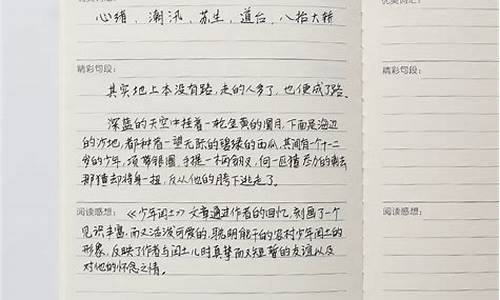 心绪、潮汛、苏生、道台、八抬大轿
精彩句段:
其实地上本没有路,走的人多了,也便成了路。
深蓝的天空中挂着一轮金黄的圆月,下面是海边
的沙地,都种着一望无际的碧绿的西瓜,其间有一个十二
岁的少年,项带银圈,手捏一柄钢叉,向一匹猹尽力的刺去
那猹却将身一扭,反从他的胯下逃走了。
阅读感想:《少年闰土》文章通过作者的回忆,刻画了一个
见识丰富,而又活泼可爱的,聪明能干的农村少年闰土的
形象,反映了作者与闰土儿时真挚而又短暂的友谊以及
对他的怀念之情。
精彩句段:
阅读感想: